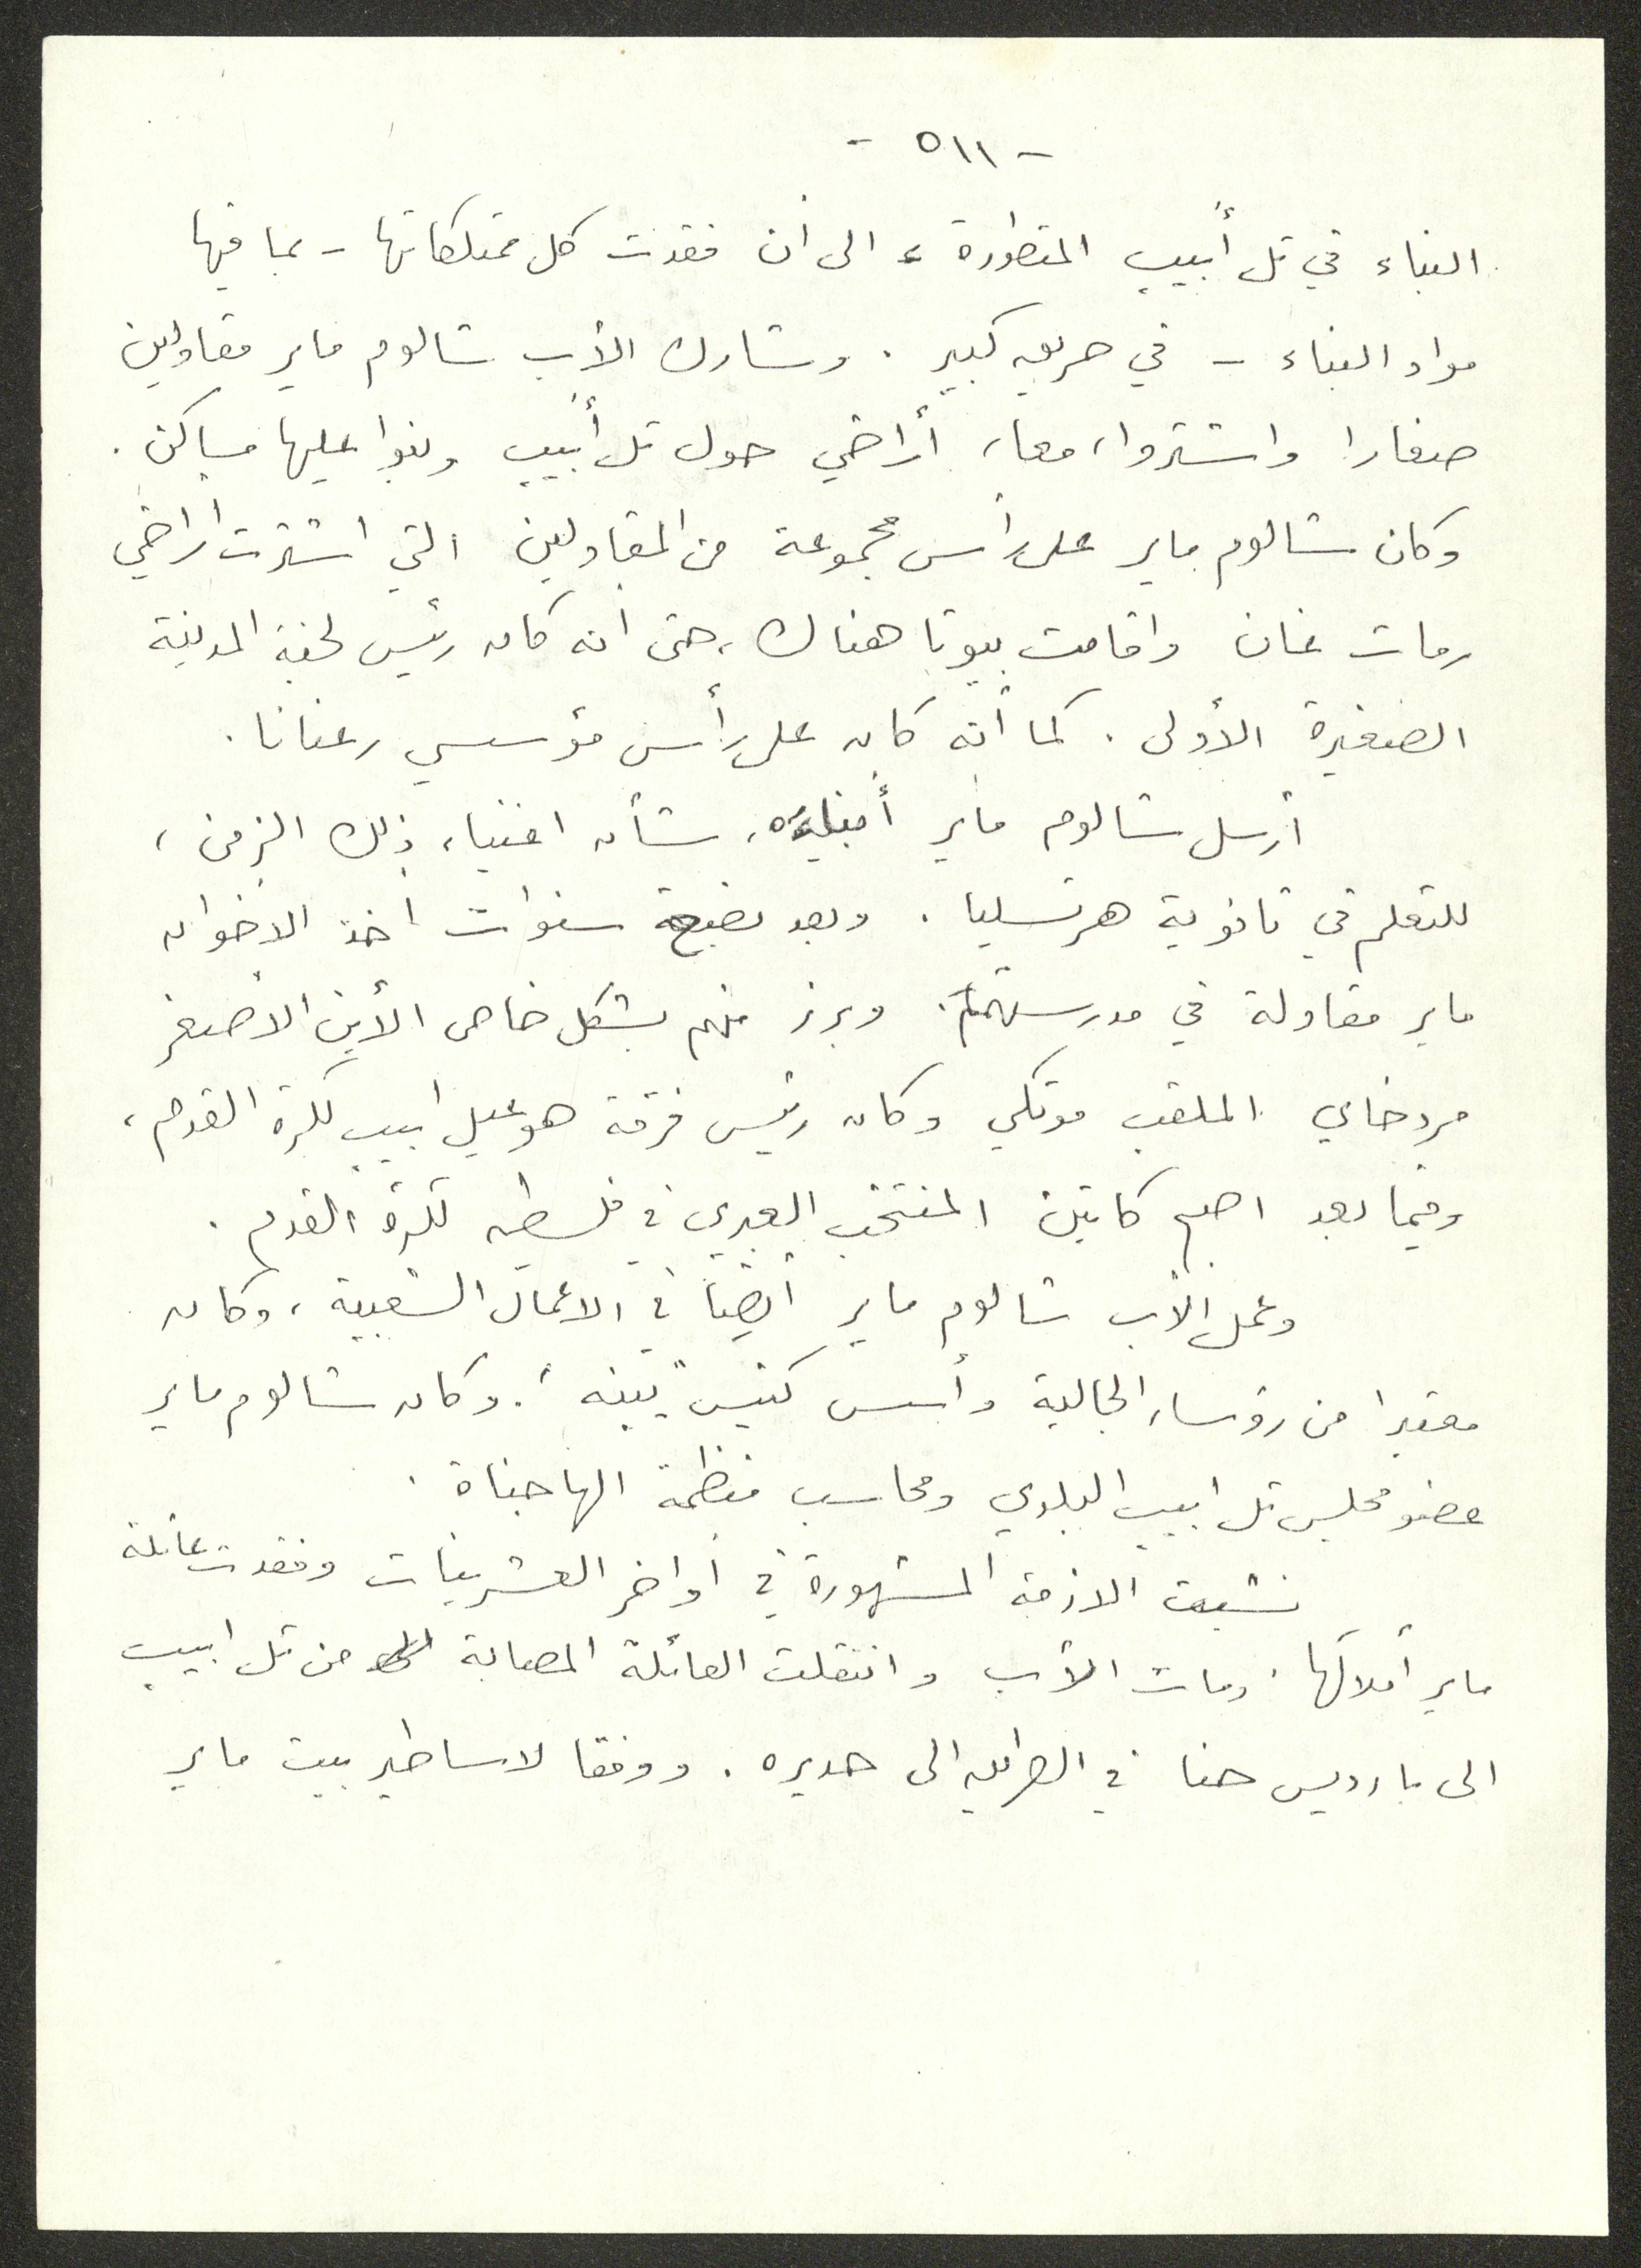 - ٥١١ -
البناء في تل أبيب المتطورة، الى ان فقدت كل ممتلكاتها - بما فيها
مواد البناء - في حريق كبير. وشارك الأب شالوم ماير مقاولين
صغارا واشتروا، معا، أراضي حول تل أبيب وبنوا عليها مساكن.
وكان شالوم ماير على رأس مجموعة من المقاولين التي اشترت اراضي
رمات غان واقامت بيوتا هناك، حتى انه كان رئيس لجنة المدينة
الصغيرة الأولى. كما أنه كان على رأس مؤسسي رعنانا.
أرسل شالوم ماير أبناءه، شأن اغنياء ذلك الزمن،
للتعلم في ثانوية هرتسليا. وبعد بضع سنوات أخذ الاخوان
ماير مقاولة في مدرستهم. وبرز منهم بشكل خاص الأبن الاصغر
مردخاي الملقب موتكي وكان رئيس فرقة هبوعيل ابيب لكرة القدم،
وفيما بعد اصبح كابتن المنتخب العبري في فلسطين لكرة القدم.
وعمل الأب شالوم ماير أيضا في الاعمال الشعبية، وكان
معتبرا من رؤساء الجالية وأسس كنيس "يبنه". وكان شالوم ماير
عضو مجلس تل ابيب البلدي ومحاسب منظمة الهاجناة.
نشبت الازمة المشهورة في أواخر العشرينات وفقدت عائلة
ماير أملاكها. ومات الأب وانتقلت العائلة المصابة من تل ابيب
الى باردیس حنا في الطريق الى حديره. ووفقا لاساطير بيت ماير